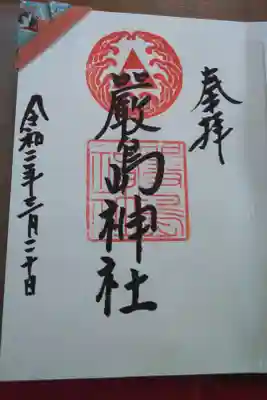 奉拝
厳島神社
令和二年三月二十日